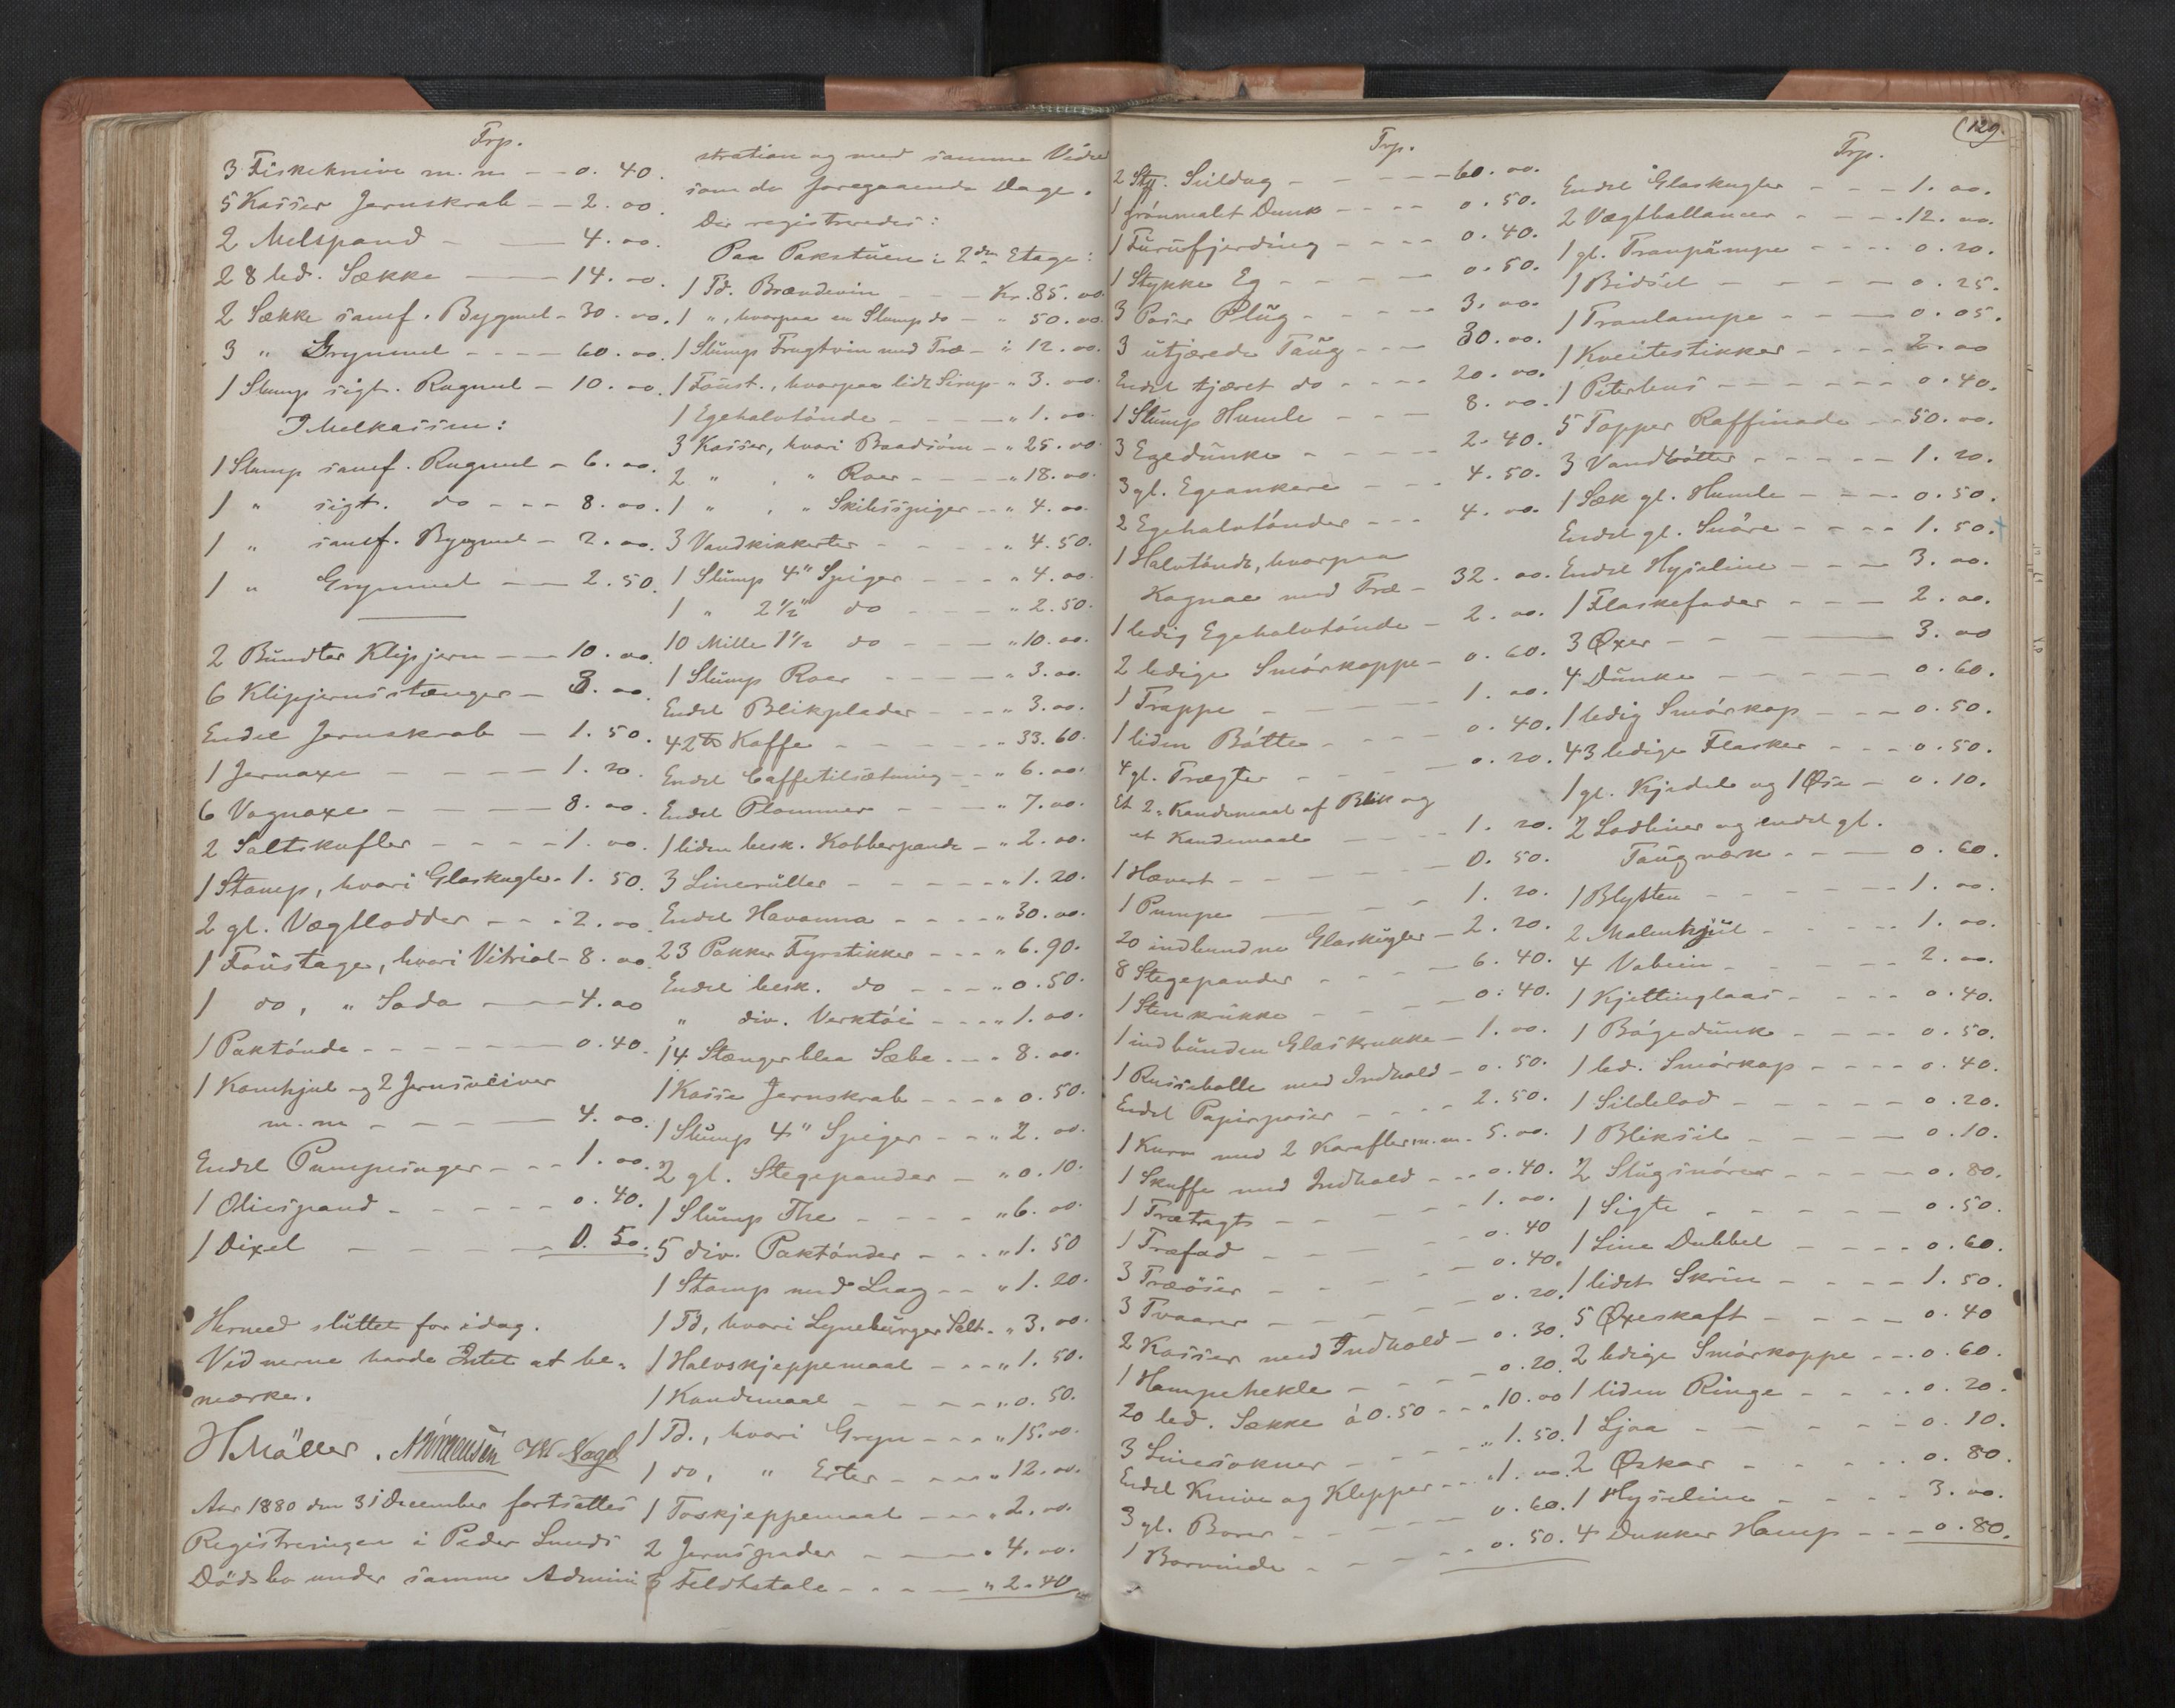 Trp.
3 Fiskeknive m. m — 0. 40.
5 Kasser Jernskrab — 2. 00.
2 Melspand — 4. 00.
28 led. Sække — 14. 00.
2 Sække samf. Bygmel — 30. 00.
3 " Grynmel — 60. 00.
1 Slump sigt. Rugmel — 10. 00.
I Melkassen:
1 Slump samf. Rugmel — 6. 00.
1 " sigt. do — 8. 00.
1 " samf. Bygmel — 2. 00.
1 " Grynmel — 2. 50.
2 Bundter Klipjern — 10. 00.
6 Klipjernsstænger — 3. 00.
Endel Jernskrab — 1. 50.
1 Jernaxe — 1. 20.
6 Vognaxe — 8. 00.
2 Saltskufler — 1. 00.
1 Stamp, hvori Glaskugler. 1. 50.
2 gl. Vægtlodder — 2. 00.
1 Foustage, hvori Vitriol — 8. 00.
1 do, " Soda — 4. 00
1 Paktönde — 0. 40.
1 Kamhjul og 2 Jernsveiver
m. m — 4. 00.
Endel Pumpesuger — 1. 00.
1 Oliespand — 0. 40.
1 Dixel — 0. 50.
Hermed sluttet for idag.
Vidnerne havde Intet at be-
mærke.
H Möller. W Nagel
Aar 1880 den 31 December fortsattes
Registreringen i Peder Lunds
Dödsbo under samme Admini
stration og med samme Vidner
som de foregaaende Dage.
Der registreredes:
Paa Pakstuen i 2den Etage:
1 Td. Brændevin — Kr. 85. 00
1 ", hvorpaa en Slump do — " 50. 00
1 Slump Frugtvin med Træ — " 12. 00.
1 Foust., hvorpaa lidt Sirup — " 3. 00.
1 Egehalvtönde — " 1. 00.
3 Kasser, hvori Baadsöm — " 25. 00
2 " , " Roer — " 18. 00.
1 " , " Skibsspiger — " 4. 00.
3 Vandkikkerter — " 4. 50.
1 Slump 4" Spiger — " 4. 00.
1 " 2½" do — " 2. 50.
10 Mille 1½ do — " 10. 00.
1 Slump Roer — " 3. 00.
Endel Blikplader — " 3. 00.
42 ℔ Kaffe — " 33. 60.
Endel Caffetilsætning — " 6. 00.
Endel Plommer — " 7. 00.
1 liden besk. Kobberpande — " 2. 00.
3 Linerüller — " 1. 20.
Endel Havanna — " 30. 00.
23 Pakker Fyrstikker — " 6. 90.
Endel besk. do — " 0. 50.
" div. Verktöi — " 1. 00.
14 Stænger blaa Sæbe — 8. 00.
1 Kasse Jernskrab — 0. 50.
1 Slump 4" Spiger — " 2. 00.
2 gl. Stegepander — " 0. 10.
1 Slump The — " 6. 00.
5 div. Paktönder — " 1. 50
1 Stamp med Laag — " 1. 20.
1 Td, hvori Lyneburger Salt — " 3. 00.
1 Halvskjeppemaal — " 1. 50.
1 Kandemaal — " 0. 50.
1 Td., hvori Gryn — " 15. 00.
1 do, " Erter — " 12. 00.
1 Toskjeppemaal — " 2. 00.
2 Jernspader — " 4. 00.
Feldhetale — " 2. 40
(129.
Trp.
2 Sty. Seildug — 60. 00.
1 grönmalt Dunk — 0. 50.
1 Furufjerding — 0. 40.
1 Stykke Eg — 0. 50.
3 Poser Plüg — 3. 00.
3 utjærede Taug — 30. 00.
Endel tjæret do — 20. 00.
1 Slump Humle — 8. 00.
3 Egedunke — 2. 40.
3 gl. Egeankere — 4. 50.
2 Egehalvtönder — 4. 00.
1 Halvtönde, hvorpaa
Kognac med Træ — 32. 00.
1 ledig Egehalvtönde — 2. 00.
2 ledige Smörkoppe — 0. 60.
1 Trappe — 1. 00.
1 liden Bötte — 0. 40.
4 gl. Trægter — 0. 20.
Et 2. Kandemaal af Blik og
et Kandemaal — 1. 20.
1 Hævert — 0. 50.
1 Pumpe — 1. 20.
20 indbundne Glaskugler — 2. 20.
8 Stegepander — 6. 40.
1 Stenkrukke — 0. 40.
1 indbunden Glaskrukke — 1. 00.
1 Russeballe med Indhold — 0. 50.
Endel Papirposer — 2. 50.
1 Kurv med 2 Karafler m. m. 5. 00.
1 Skuffe med Indhold — 0. 40.
1 Trætragt — 1. 00.
1 Træfad — 0. 40
3 Træöser — 0. 40.
3 Tvaarer — 0. 20.
2 Kasser med Indhold — 0. 30.
1 Hampehekle — 0. 20.
20 led. Sække á 0. 50 — 10. 00
3 Linesokner — " 1. 50.
Endel Knive og Klepper — 1. 00.
3 gl. Borer — 0. 60.
1 Borvinde — 0. 50.
Trp.
Endel Glaskugler — 1. 00.
2 Vægtballancer — 12. 00.
1 gl. Tranpumpe — 0. 20.
1 Bidsel — 0. 25.
1 Tranlampe — 0. 05.
1 Kveitestikker — 2. 00
1 Peterhus — 0. 40.
5 Topper Raffinade — 50. 00.
3 Vandbötter — 1. 20.
1 Sæk gl. Humle — 0. 50.
Endel gl. Snöre — 1. 50.
Endel Hyseline — 3. 00.
1 Flaskefoder — 2. 00.
3 Øxer — 3. 00
4 Dunke — 0. 60.
1 ledig Smörkop — 0. 50.
43 ledige Flasker — 0. 50.
1 gl. Kjedel og 1 Øse — 0. 10.
2 Lodliner og endel gl.
Taugværk — 0. 60.
1 Blysten — 1. 00.
2 Malenhjul — 1. 00.
4 Vabein — 2. 00.
1 Kjettinglaas — 0. 40.
1 Bögedunk — 0. 50.
1 led. Smörkop — 0. 40.
1 Sildelod — 0. 20.
1 Bliksil — 0. 10.
2 Slugsnörer — 0. 80.
1 Sigte — 0. 50.
1 Line Dubbel — 0. 60.
1 lidet Skrin — 1. 50.
5 Øxeskaft — 0. 40
2 ledige Smörkoppe — 0. 60.
1 liden Ringe — 0. 20.
1 Ljaa — 0. 10.
2 Öskar — 0. 80.
1 Hyseline — 3. 00.
4 Dukker Hamp — 0. 80.